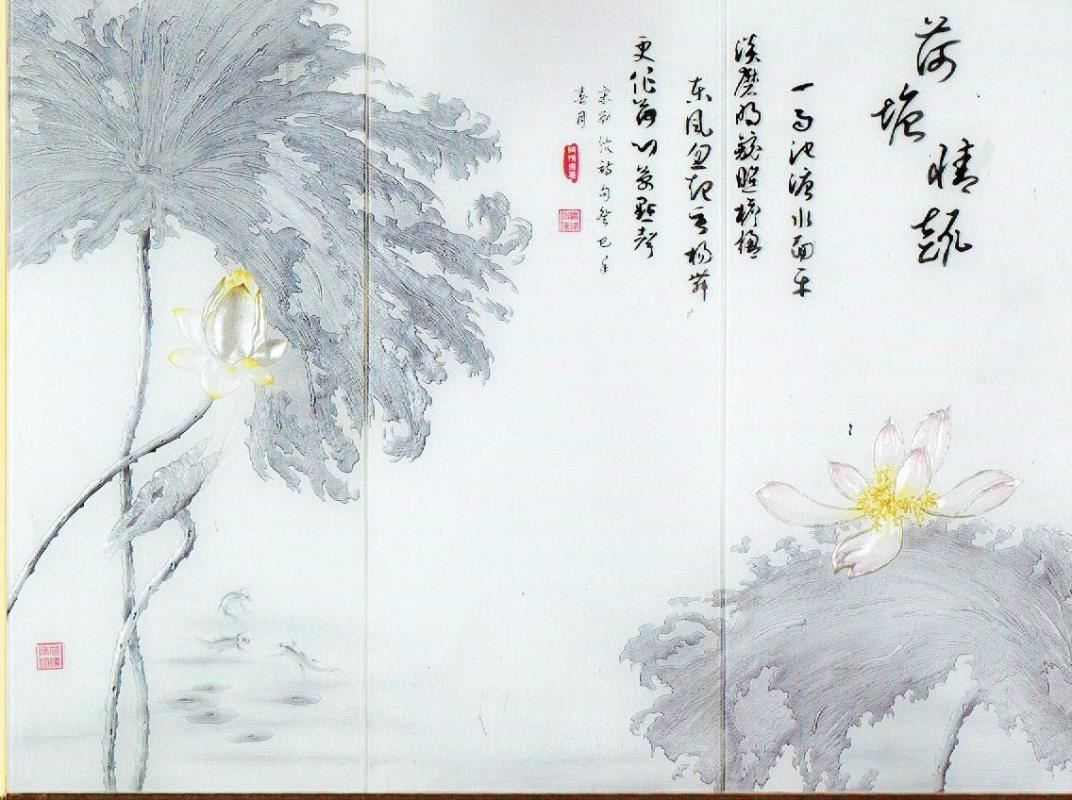 荷塘情
一雨池塘水面平
淡磨明鏡照檐楹
东风忽起垂杨舞
更作荷心万點聲
宋刘攽诗句癸巳年
春月